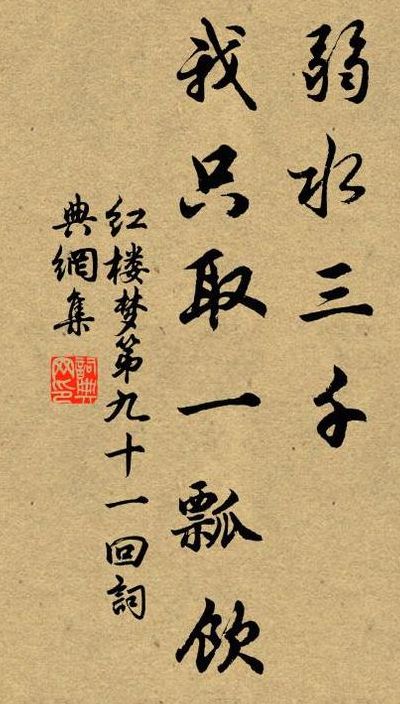 弱水三千
我只取一瓢飲
红楼梦第九十一回詞
典網集
詞典网印